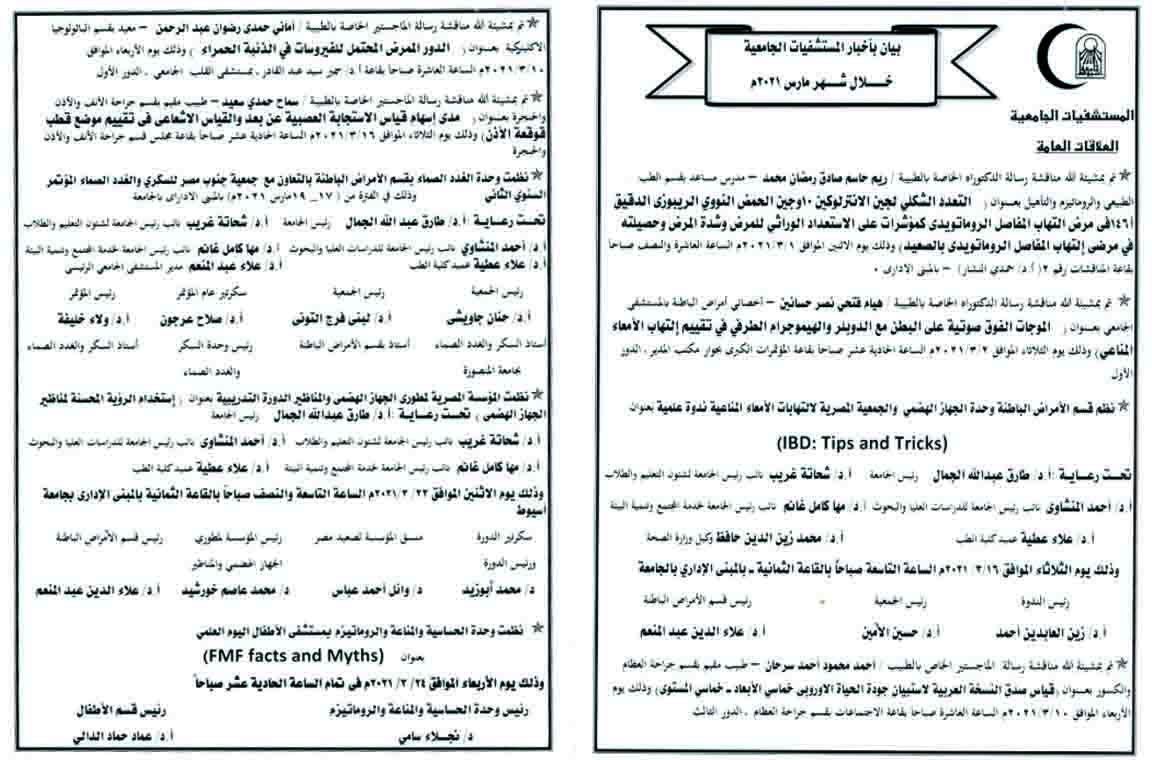 بيان بأخبار المستشفيات الجامعية
خـلال شـهـر مارس ٢٠٢١م
المستشفيات الجامعية
العلاقات العامة
* تم بمشيئة الله مناقشة رسالة الدكتوراه الخاصة بالطبيبة / ريم جاسم صادق رمضان محمد – مدرس مساعد بقسم الطب
الطبيعي والروماتيزم والتأهيل بعنوان ( التعدد الشكلي لجين الانترلوكين ١٠وجين الحمض النووي الريبوزى الدقيق
١٤٦أفى مرض التهاب المفاصل الروماتويدى كمؤشرات على الاستعداد الوراثي للمرض وشدة المرض وحصيلته
في مرضى إلتهاب المفاصل الروماتويدى بالصعيد) وذلك يوم الاثنين الموافق ٢٠٢١/٣/١م الساعة العاشرة والنصف صباحاً
بقاعة المناقشات رقم ٢( أ.د/ حمدي النشار) – بالمبنى الادارى .
* تم بمشيئة الله مناقشة رسالة الدكتوراه الخاصة بالطبيبة / هيام فتحي نصر حسانين – أخصائي أمراض الباطنة بالمستشفى
الجامعي بعنوان ( الموجات الفوق صوتية على البطن مع الدوبلر والهيموجرام الطرفي في تقييم إلتهاب الأمعاء
المناعي) وذلك يوم الثلاثاء الموافق ٢٠٢١/٣/٢م الساعة الحادية عشر صباحاً بقاعة المؤتمرات الكبرى بجوار مكتب المدير . الدور
الأول
* نظم قسم الأمراض الباطنة وحدة الجهاز الهضمي والجمعية المصرية لالتهابات الأمعاء المناعية ندوة علمية بعنوان
(IBD: Tips and Tricks)
تحـت رعـايـة :أ.د/ طارق عبدالله الجمال رئيس الجامعة أ.د/ شحاتة غريب نائب رئيس الجامعة لشئون التعليم والطلاب
أ.د/ أحمد المنشاوى نائب رئيس الجامعة للدراسات العليا والبحوث أ.د/ مها كامل غانم نائب رئيس الجامعة خدمة المجتمع وتنمية البيئة
أ.د/ علاء عطية عميد كلية الطب أ.د/ محمد زين الدين حافظ وكيل وزارة الصحة
وذلك يوم الثلاثاء الموافق ٢٠٢١/٣/١٦م الساعة التاسعة صباحاً بالقاعة الثمانية ـ بالمبنى الإداري بالجامعة
رئيس الندوة رئيس الجمعية رئيس قسم الأمراض الباطنة
أ.د/ زين العابدين أحمد أ.د/ حسين الأمين أ.د/ علاء الدين عبد المنعم
* تم بمشيئة الله مناقشة رسالة الماجستير الخاص بالطبيب / أحمد محمود أحمد سرحان – طبيب مقيم بقسم جراحة العظام
والكسور بعنوان ( قياس صدق النسخة العربية لاستبيان جودة الحياة الاوروبى خماسي الأبعاد ـ خماسي المستوى) وذلك يوم
الأربعاء الموافق ٢٠٢١/٣/١٠م الساعة العاشرة صباحاً بقاعة الاجتماعات بقسم جراحة العظام . الدور الثالث
* تم بمشيئة الله مناقشة رسالة الماجستير الخاصة بالطبيبة / أماني حمدى رضوان عبد الرحمن – معيد بقسم الباثولوجيا
الاكلينيكية بعنوان ( الدور الممرض المحتمل للفيروسات في الذئبة الحمراء ) وذلك يوم الأربعاء الموافق
٢٠٢١/٣/١٠م الساعة العاشرة صباحاً بقاعة أ.د/ سمير سيد عبد القادر ـ بمستشفى القلب الجامعي . الدور الأول
* تم بمشيئة الله مناقشة رسالة الماجستير الخاصة بالطبيبة / سماح حمدي سعيد – طبيب مقيم بقسم جراحة الأنف والأذن
والحنجرة بعنوان ( مدى إسهام قياس الاستجابة العصبية عن بعد والقياس الاشعاعى فى تقييم موضع قطب
قوقعة الأذن) وذلك يوم الثلاثاء الموافق ٢٠٢١/٣/١٦م الساعة الحادية عشر صباحاً بقاعة مجلس قسم جراحة الأنف والأذن
والحنجرة
* نظمت وحدة الغدد الصماء بقسم الأمراض الباطنة بالتعاون مع جمعية جنوب مصر للسكري والغدد الصماء المؤتمر
السنوي الثاني وذلك في الفترة من ( ١٧_ ١٩مارس ٢٠٢١م) بالمبنى الادارى بالجامعة
تحـت رعـايـة :أ.د/ طارق عبد الله الجمال رئيس الجامعة أ.د/ شحاتة غريب نائب رئيس الجامعة لشئون التعليم والطلاب
أ.د/ أحمد المنشاوي نائب رئيس الجامعة للدراسات العليا والبحوث أ.د/ مها كامل غانم نائب رئيس الجامعة خدمة المجتمع وتنمية البيئة
أ.د/ علاء عطية عميد كلية الطب أ.د/ علاء عبد المنعم مدير المستشفى الجامعي الرئيسى
رئيس الجمعية رئيس الجمعية سكرتير عام المؤتمر رئيس المؤتمر
أ.د/ حنان جاويشى أ.د/ لبنى فرج التونى أ.د/ صلاح عرجون أ.د/ ولاء خليفة
أستاذ السكر والغدد الصماء أستاذ بقسم الأمراض الباطنة رئيس وحدة السكر أستاذ السكر والغدد الصماء
بجامعة المنصورة والغدد الصماء
* نظمت المؤسسة المصرية لمطورى الجهاز الهضمى والمناظير الدورة التدريبية بعنوان ( إستخدام الرؤية المحسنة لمناظير
الجهاز الهضمى ) تحـت رعـايـة :أ.د/ طارق عبدالله الجمال رئيس الجامعة
أ.د/ شحاتة غريب نائب رئيس الجامعة لشئون التعليم والطلاب أ.د/ أحمد المنشاوى نائب رئيس الجامعة للدراسات العليا والبحوث
أ.د/ مها كامل غانم نائب رئيس الجامعة خدمة المجتمع وتنمية البيئة أ.د/ علاء عطية عميد كلية الطب
وذلك يوم الاثنين الموافق ٢٠٢١/٣/٢٢م الساعة التاسعة والنصف صباحاً بالقاعة الثمانية بالمبنى الإدارى بجامعة
أسيوط
سكرتير الدورة منسق المؤسسة لصعيد مصر رئيس المؤسسة لمطوري رئيس قسم الأمراض الباطنة
ورئيس الدورة الجهاز الهضمي والمناظير
د/ محمد أبوزيد د/ وائل أحمد عباس د/ محمد عاصم خورشيد أ.د/ علاء الدين عبد المنعم
* نظمت وحدة الحساسية والمناعة والروماتيزم بمستشفى الأطفال اليوم العلمي
بعنوان (FMF facts and Myths)
وذلك يوم الأربعاء الموافق ٢٠٢١/٣/٢٤م فى تمام الساعة الحادية عشر صباحاً
رئيس وحدة الحساسية والمناعة والروماتيزم رئيس قسم الأطفال
د/ نجـلاء سامى أ.د/ عماد حماد الدالي